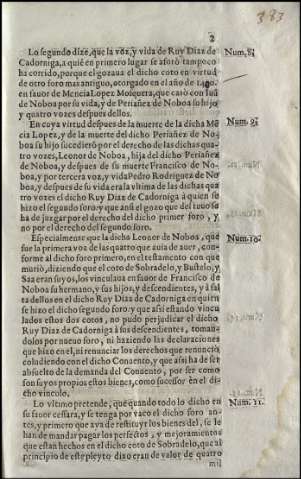 2
383
Lo segundo dize, que la voz, y vida de Ruy Diaz de
Cadorniga, a quiẽ en primero lugar se aforò tampoco
ha corrido, porque el gozaua el dicho coto en virtud
de otro foro mas antiguo, otorgado en el año de 1490.
en fauor de Mencia Lopez Mosquera, que casò con Luis
de Noboa por su vida, y de Periañez de Noboa su hijo
y quatro vozes despues dellos.
Num. 8.
En cuya virtud despues de la muerte de la dicha Mẽ
cia Lopez, y de la muerte del dicho Periañez de No-
boa su hijo sucediero por el derecho de las dichas qua-
tro vozes, Leonor de Noboa, hija del dicho Periañez
de Noboa, y despues de su muerte Francisco de No-
boa, y por tercera voz, y vida Pedro Rodriguez de No-
boa, y despues de su vida era la vltima de las dichas qua
tro vozes el dicho Ruy Diaz de Cadorniga à quien se
hizo el segundo foro: y que ansi el gozo que del tuuo se
ha de juzgar por el derecho del dicho primer foro, y
no por el derecho del segundo foro.
Num. 9.
Especialmente que la dicha Leonor de Noboa, que
fue la primera voz de las quatro que auia de auer, con-
forme al dicho foro primero, en el testamento con que
murio, diziendo que el coto de Sobradelo, y Bustelo, y
Saa eran suyos, los vinculaua en fauor de Francisco de
Noboa su hermano, y sus hijos, y descendientes, y à fal
ta dellos en el dicho Ruy Diaz de Cadorniga en quien
se hizo el dicho segundo foro: y que assi estando vincu
lados estos dos cotos, no pudo perjudicar el dicho
Ruy Diaz de Cadorniga à sus descendientes, toman-
dolos por nueuo foro, ni haziendo las declaraciones
que hizo en el, ni renunciar los derechos que renunciò,
coludiendo con el dicho Conuento, y que assi ha de ser
absuelto de la demanda del Conuento, por ser como
son suyos propios estos bienes, como sucessor en el di-
cho vinculo.
Num. 10.
Lo vltimo pretende, que quando todo lo dicho en
su fauor cessara, y se tenga por vaco el dicho foro an-
tes, y primero que aya de restituyr los bienes del, se le
han de mandar pagar los perfectos, y mejoramientos
que estan hechos en el dicho coto de Sobradelo, que al
principio de este pleyto dixo eran de valor de quatro
mil
Num. 11.